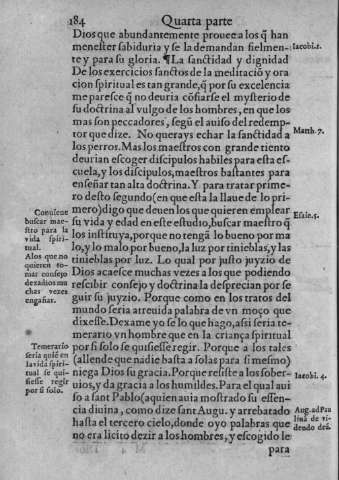 184 Quarta parte
Dios que abundantemente prouee a los q̃ han
menester sabiduria y se la demandan fielmen-
te y para su gloria. ¶ La sanctidad y dignidad
De los exercicios sanctos de la meditaciõ y ora
cion spiritual es tan grande, q̃ por su excelencia
me paresce q̃ no deuria cõfiarse el mysterio de
su doctrina al vulgo de los hombres, en que los
mas son peccadores, segũ el auiso del redemp-
tor que dize. No querays echar la sanctidad a
los perros. Mas los maestros con grande tiento
deurian escoger discipulos habiles para esta es-
cuela, y los discipulos, maestros bastantes para
enseñar tan alta doctrina. Y para tratar prime-
ro desto segundo (en que esta la llaue de lo pri-
mero) digo que deuen los que quieren emplear
su vida y edad en este estudio, buscar maestro q̃
los instituya, porque no tengã lo bueno por ma
lo, y lo malo por bueno, la luz por tinieblas, y las
tinieblas por luz. Lo qual por justo juyzio de
Dios acaesce muchas vezes a los que podiendo
rescibir consejo y doctrina la desprecian por se
guir su juyzio. Porque como en los tratos del
mundo seria atreuida palabra de vn moço que
dixesse. Dexame yo se lo que hago, assi seria te-
merario vn hombre que en la criança spiritual
por si solo se quisiesse regir. Porque a los tales
(allende que nadie basta a solas para si mesmo)
niega Dios su gracia. Porque resiste a los sober-
uios, y da gracia a los humildes. Para el qual aui
so a sant Pablo (a quien auia mostrado su essen-
cia diuina, como dize sant Augu. y arrebatado
hasta el tercero cielo, donde oyo palabras que
no era licito dezir a los hombres, y escogido le
para
Iacobi. 1.
Matth. 7.
Esaie. 5.
Iacobi. 4.
Aug. ad Pau
lina de vi-
dendo deũ.
Conuiene
buscar mae-
stro para la
vida spiri-
tual.
A los que no
quieren to-
mar consejo
dexa dios mu
chas vezes
engañar.
Temerario
seria quiẽ en
la vida spiri-
tual se qui-
siesse regir
por si solo.